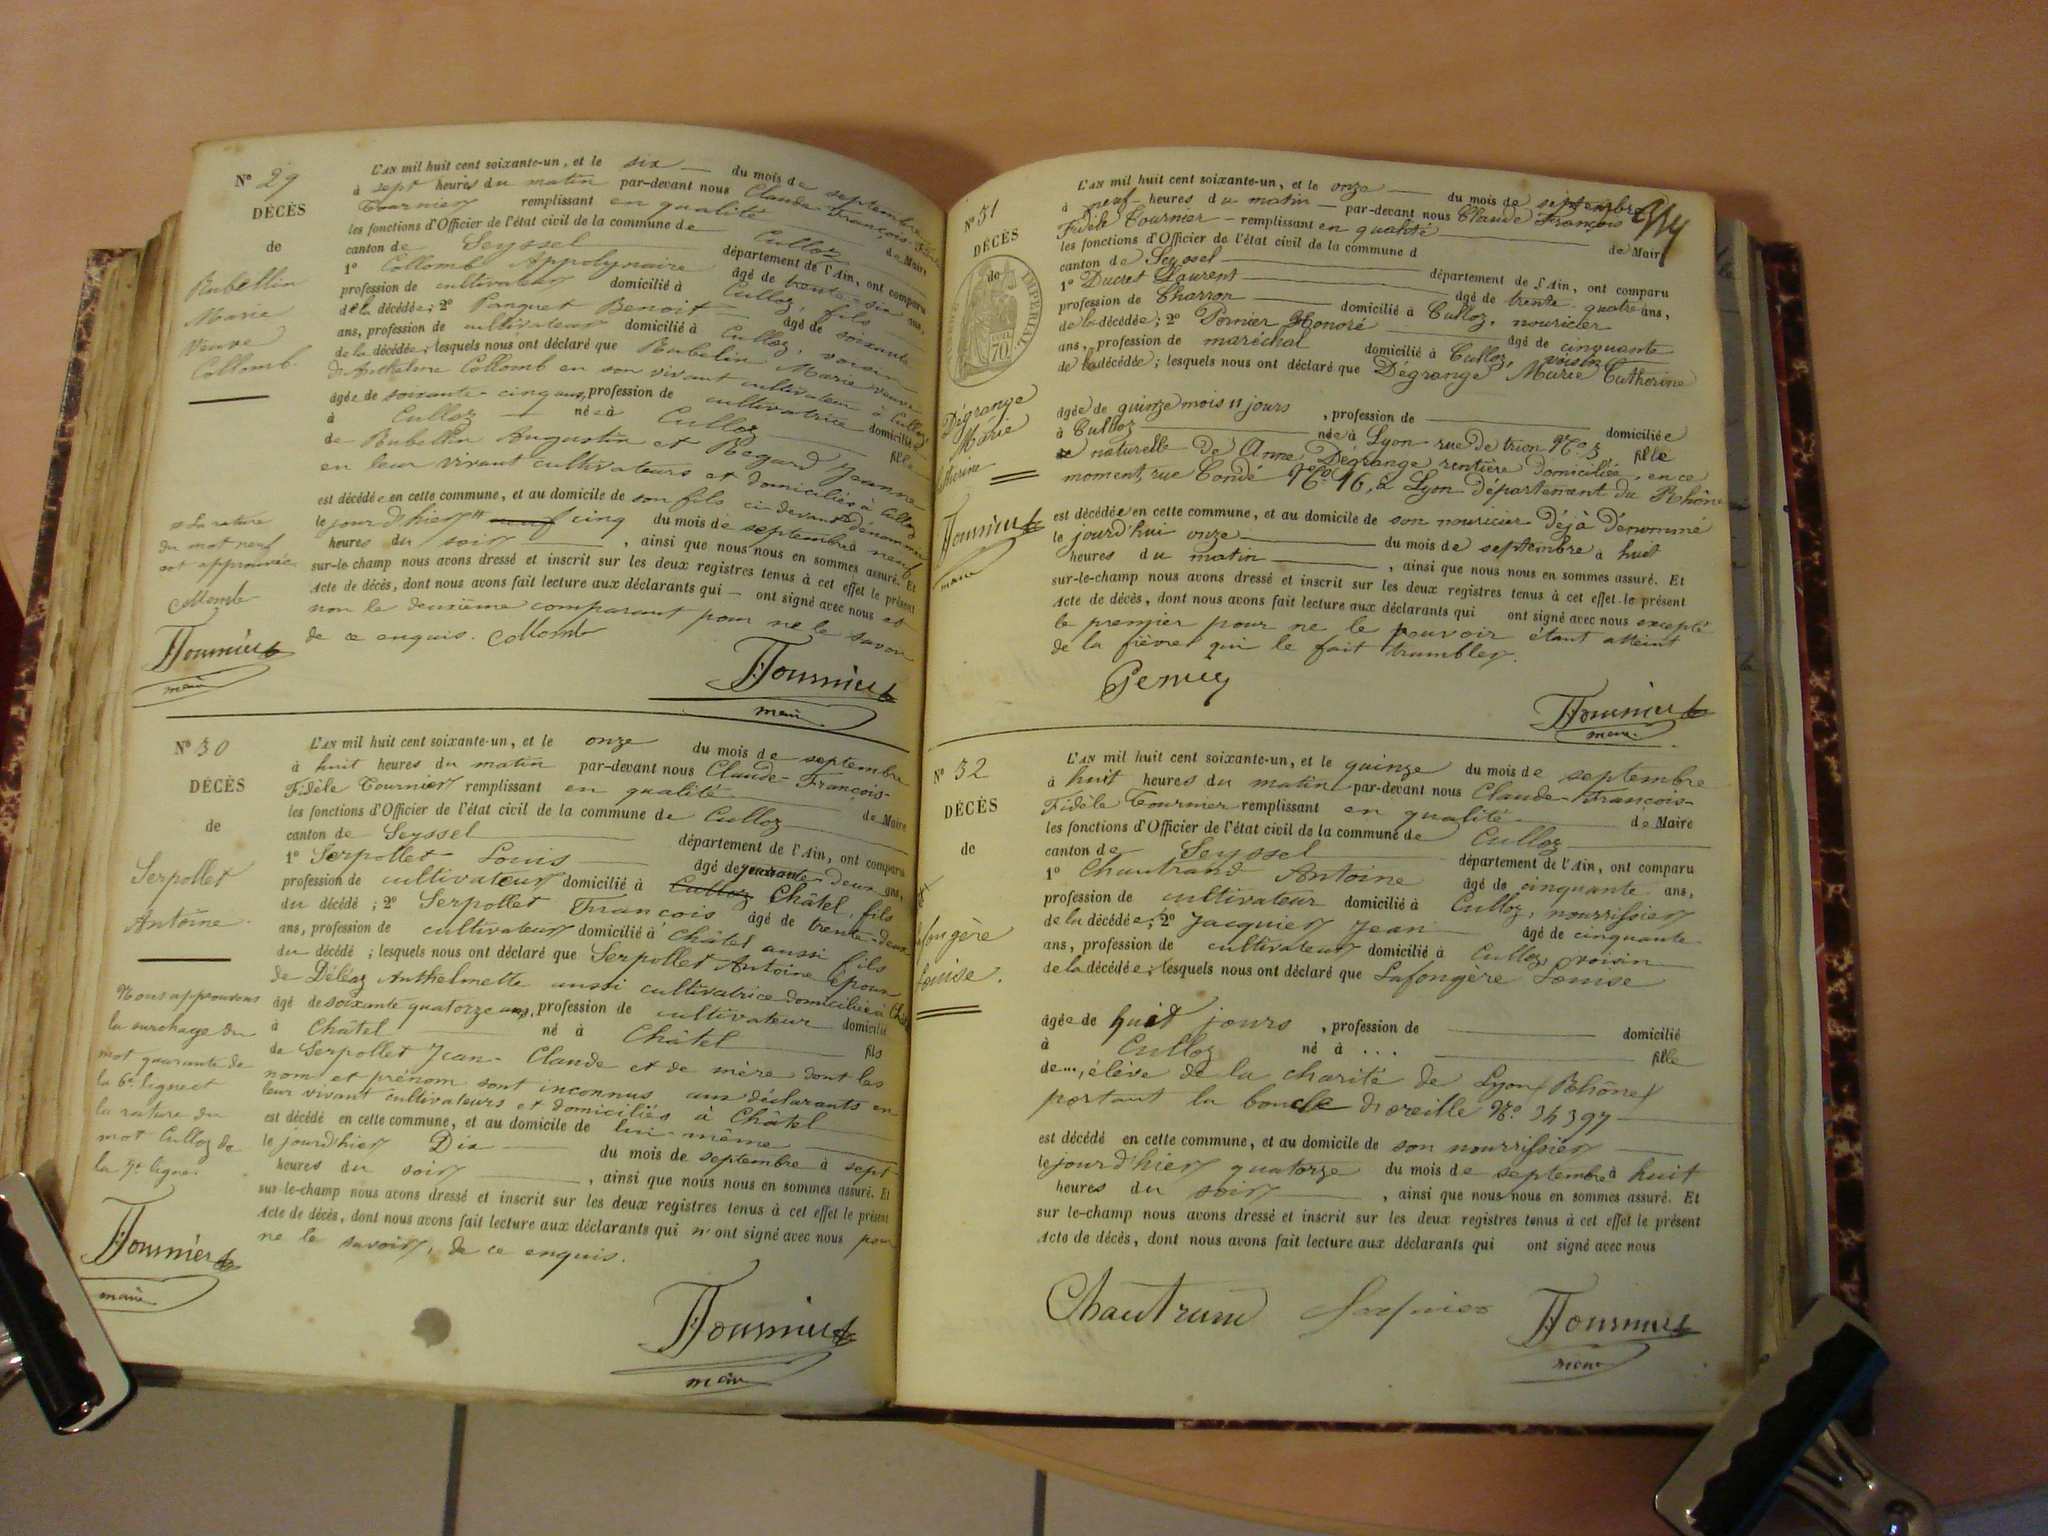 N° 29
DÉCÈS
de
Rubellin
Marie
Veuve
Collomb
L'AN mil huit cent soixante-un, et le six du mois de septembre
à sept heures du matin par-devant nous Claude-François-Fidèle
Tournier remplissant en qualité de Maire
les fonctions d'Officier de l'état civil de la commune de Culloz
canton de Seyssel département de l'Ain, ont comparu
1° Collomb Appolynaire âgé de trente-six ans,
profession de cultivateur domicilié à Culloz, fils
de la décédée; 2° Panquet Benoit âgé de soixante
ans, profession de cultivateur domicilié à Culloz, voisin
de la décédée; lesquels nous ont déclaré que Rubelin Marie veuve
d'Anthelme Collomb en son vivant cultivateur à Culloz,
âgée de soixante cinq ans, profession de cultivatrice domiciliée
à Culloz née à Culloz fille
de Rubellin Augustin et Regard Jeanne
en leur vivant cultivateurs et domiciliés à Culloz
est décédée en cette commune, et au domicile de son fils ci-devant dénommé
le jourd'hier neuf cinq du mois de septembre à neuf
heures du soir, ainsi que nous nous en sommes assuré. Et
sur-le-champ nous avons dressé et inscrit sur les deux registres tenus à cet effet le présent
Acte de décès, dont nous avons fait lecture aux déclarants qui ont signé avec nous et
non le deuxième comparant pour ne le savoir
de ce enquis. Collomb
La rature
du mot neuf
est approuvée
Collomb
Tournier
maire
Tournier
maire
N° 30
DÉCÈS
de
Serpollet
Antoine.
L'AN mil huit cent soixante-un, et le onze du mois de septembre
à huit heures du matin par-devant nous Claude-François-
Fidèle Tournier remplissant en qualité de Maire
les fonctions d'Officier de l'état civil de la commune de Culloz
canton de Seyssel département de l'Ain, ont comparu
1° Serpollet Louis âgé de quarante deux ans,
profession de cultivateur domicilié à Culloz Châtel, fils
du décédé; 2° Serpollet François âgé de trente-deux
ans, profession de cultivateur domicilié à Châtel aussi fils
du décédé; lesquels nous ont déclaré que Serpollet Antoine époux
de Déléaz Anthelmette aussi cultivatrice domiciliée à Châtel
âgé de soixante quatorze ans, profession de cultivateur domicilié
à Châtel né à Châtel fils
de Serpollet Jean-Claude et de mère dont les
nom et prénom sont inconnus aux déclarants en
leur vivant cultivateurs et domiciliés à Châtel
est décédé en cette commune, et au domicile de lui-même
le jourd'hier Dix du mois de septembre à sept
heures du soir, ainsi que nous nous en sommes assuré. Et
sur-le-champ nous avons dressé et inscrit sur les deux registres tenus à cet effet le présent
Acte de décès, dont nous avons fait lecture aux déclarants qui n'ont signé avec nous pour
ne le savoir, de ce enquis.
Nous approuvons
la surchage du
mot quarante de
la 6e ligne et
la rature du
mot Culloz de
la 7e ligne.
Tournier
maire
Tournier
maire
N° 31
DÉCÈS
de
IMPÉRIAL
70
Dégrange
Marie
Catherine
Tournier
maire
L'AN mil huit cent soixante-un, et le onze du mois de septembre
à neuf heures du matin par-devant nous Claude François
Fidèle Tournier remplissant en qualité de Maire
les fonctions d'Officier de l'état civil de la commune d
canton de Seyssel département de l'Ain, ont comparu
1° Ducret Laurent âgé de trente-quatre ans,
profession de Charron domicilié à Culloz, nouricier
de la décédée; 2° Pernier Honoré âgé de cinquante
ans, profession de maréchal domicilié à Culloz, voisin
de la décédée; lesquels nous ont déclaré que Dégrange Marie Catherine
âgée de quinze mois 11 jours, profession de domiciliée
à Culloz née à Lyon rue de trion N° 3 fille
naturelle de Anne Dégrange rentière domiciliée, en ce
moment, rue Condé N° 16, à Lyon département du Rhône
est décédée en cette commune, et au domicile de son nouricier Déjà Dénommé
le jourd'hui onze du mois de septembre à huit
heures du matin, ainsi que nous nous en sommes assuré. Et
sur-le-champ nous avons dressé et inscrit sur les deux registres tenus à cet effet le présent
Acte de décès, dont nous avons fait lecture aux déclarants qui ont signé avec nous excepté
le premier pour ne le pouvoir étant atteint
de la fièvre qui le fait trembler.
Tournier
maire
N° 32
DÉCÈS
de
Lafongère
Louise.
L'AN mil huit cent soixante-un, et le quinze du mois de septembre
à huit heures du matin par-devant nous Claude-François-
Fidèle Tournier remplissant en qualité de Maire
les fonctions d'Officier de l'état civil de la commune de Culloz
canton de Seyssel département de l'Ain, ont comparu
1° Chautrand Antoine âgé de cinquante ans,
profession de cultivateur domicilié à Culloz, nourrissier
de la décédée; 2° Jacquier Jean âgé de cinquante
ans, profession de cultivateur domicilié à Culloz, voisin
de la décédée; lesquels nous ont déclaré que Lafongère Louise
âgée de huit jours, profession de domicilié
à Culloz né à ... fille
de ..., élève de la charité de Lyon (Rhône)
portant la boucle d'oreille N° 34397
est décédé en cette commune, et au domicile de son nourrissier
le jourd'hier quatorze du mois de septembre à huit
heures du soir, ainsi que nous nous en sommes assuré. Et
sur le-champ nous avons dressé et inscrit sur les deux registres tenus à cet effet le présent
Acte de décès, dont nous avons fait lecture aux déclarants qui ont signé avec nous
Chautrand Jacquier Tournier
maire